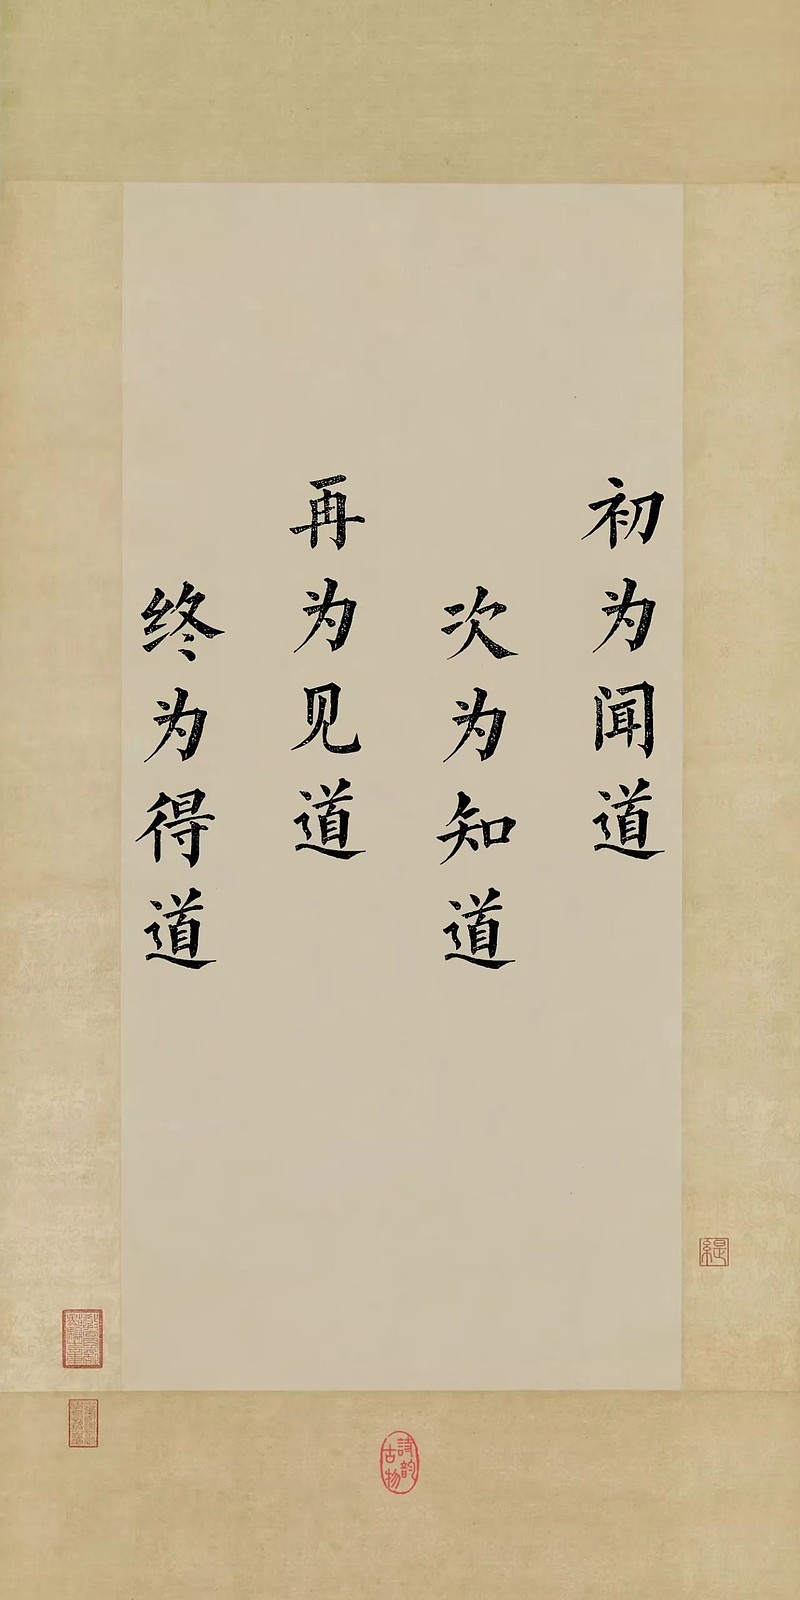 初为闻道
次为知道
再为见道
终为得道
緹
詩韵
古物